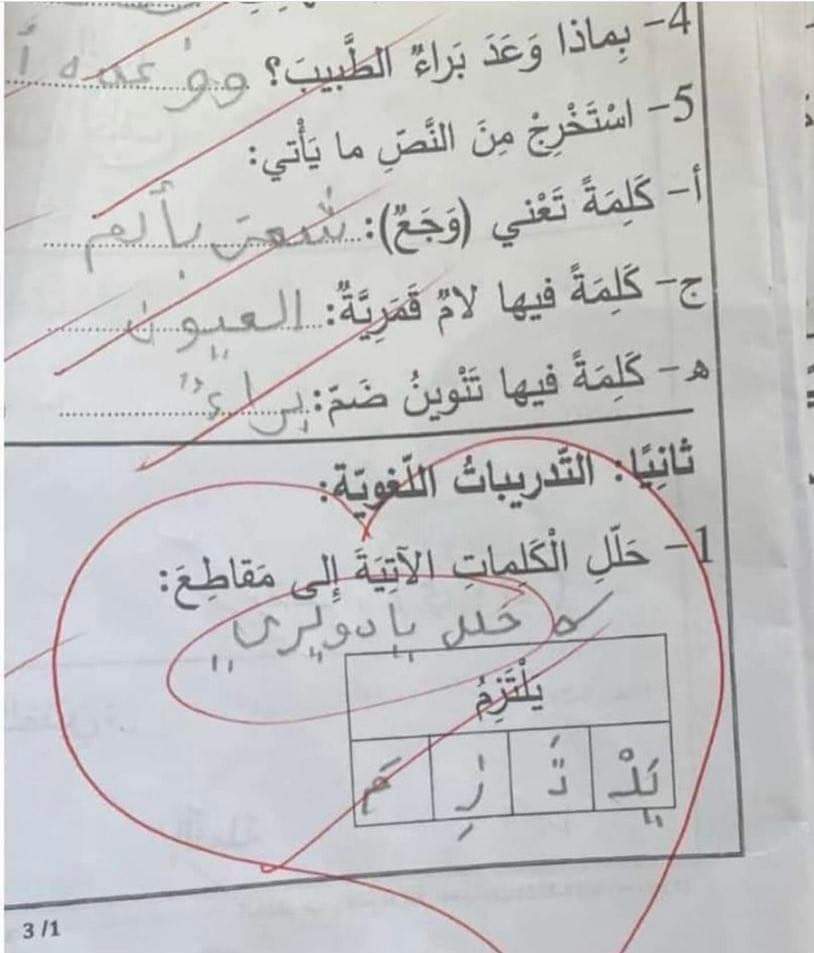 4- بِماذا وَعَدَ بَراءٌ الطَّبيبَ؟ ووعده أ
5- اسْتَخْرِجْ مِنَ النَّصِّ ما يَأْتي:
أ- كَلِمَةً تَعْني (وَجَعٌ): شعر بألم
ج- كَلِمَةً فيها لامٌ قَمَرِيَّةٌ: العيون
هـ- كَلِمَةً فيها تَنْوينُ ضَمّ: براءٌ
ثانِيًا: التّدريباتُ اللّغويّة:
1- حَلّلِ الْكَلِماتِ الآتِيَةَ إِلى مَقاطِعَ:
حلل يا دويري
يلْتَزِمُ
يَلْ تَ زِ مُ
3 /1